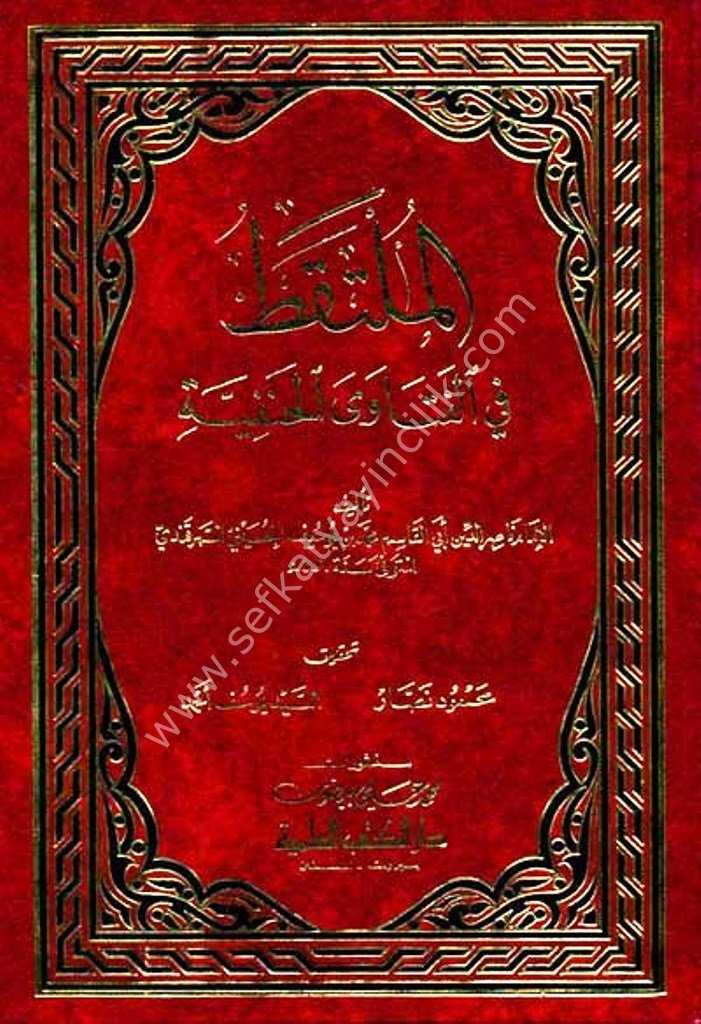 الملتقط
في الفتاوى الحنفية
تأليف
الإمام ناصر الدين أبي القاسم محمد بن يوسف الحسيني السمرقندي
المتوفى سنة
تحقيق
محمود نصار السيد يوسف أحمد
منشورات
محمد علي بيضون
دار الكتب العلمية
بيروت - لبنان
www.sefkatyayincilik.com